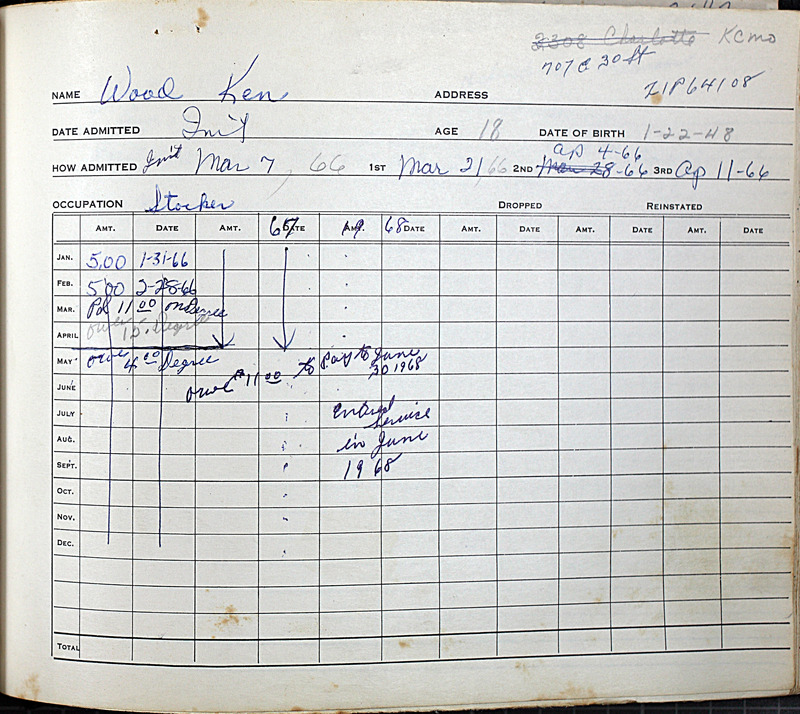 2308 Charlotte KCMO
707 E 30 St
NAME Wood Ken ADDRESS ZIP 64108
DATE ADMITTED Init AGE 18 DATE OF BIRTH 1-22-48
Ap 4-66
HOW ADMITTED Init Mar 7, 66 1ST Mar 21/66 2ND Mar 28-66 3RD Ap 11-66
OCCUPATION Stocker DROPPED REINSTATED
AMT. DATE AMT. 67 DATE AMT. 19 68 DATE AMT. DATE AMT. DATE AMT. DATE
JAN. 5.00 1-31-66
FEB. 5.00 2-28-66
MAR. Pd 11 00 on Degree
APRIL owes 15. Degree
MAY owe 4 00 Degree
owe $11 00 to Pay to June 30 1968
JUNE
JULY Entered Service
AUG. in June
SEPT. 1968
OCT.
NOV.
DEC.
TOTAL